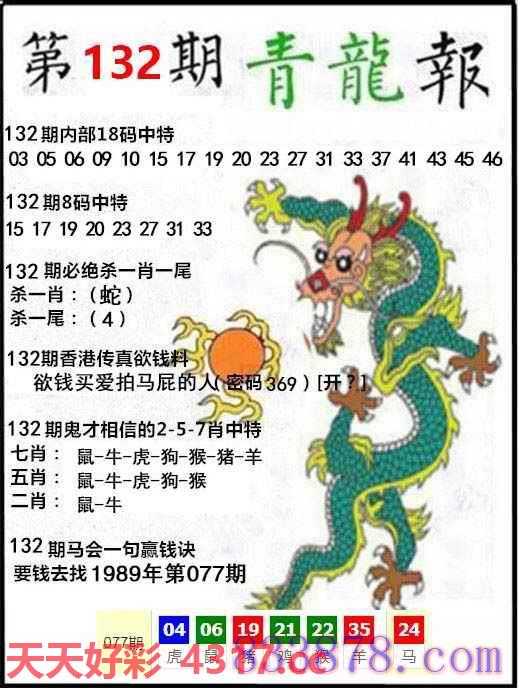 第132期青龍報
132期内部18码中特
03 05 06 09 10 15 17 19 20 23 27 31 33 37 41 43 45 46
132期8码中特
15 17 19 20 23 27 31 33
132期必绝杀一肖一尾
杀一肖：（蛇）
杀一尾：（4）
132期香港传真欲钱料
欲钱买爱拍马屁的人（密码369）[开？]
132期鬼才相信的2-5-7肖中特
七肖： 鼠-牛-虎-狗-猴-猪-羊
五肖： 鼠-牛-虎-狗-猴
二肖： 鼠-牛
132期马会一句赢钱诀
要钱去找1989年第077期
077期 04 06 19 21 22 35 24
虎 鼠 猪 鸡 猴 羊 马
天天好彩